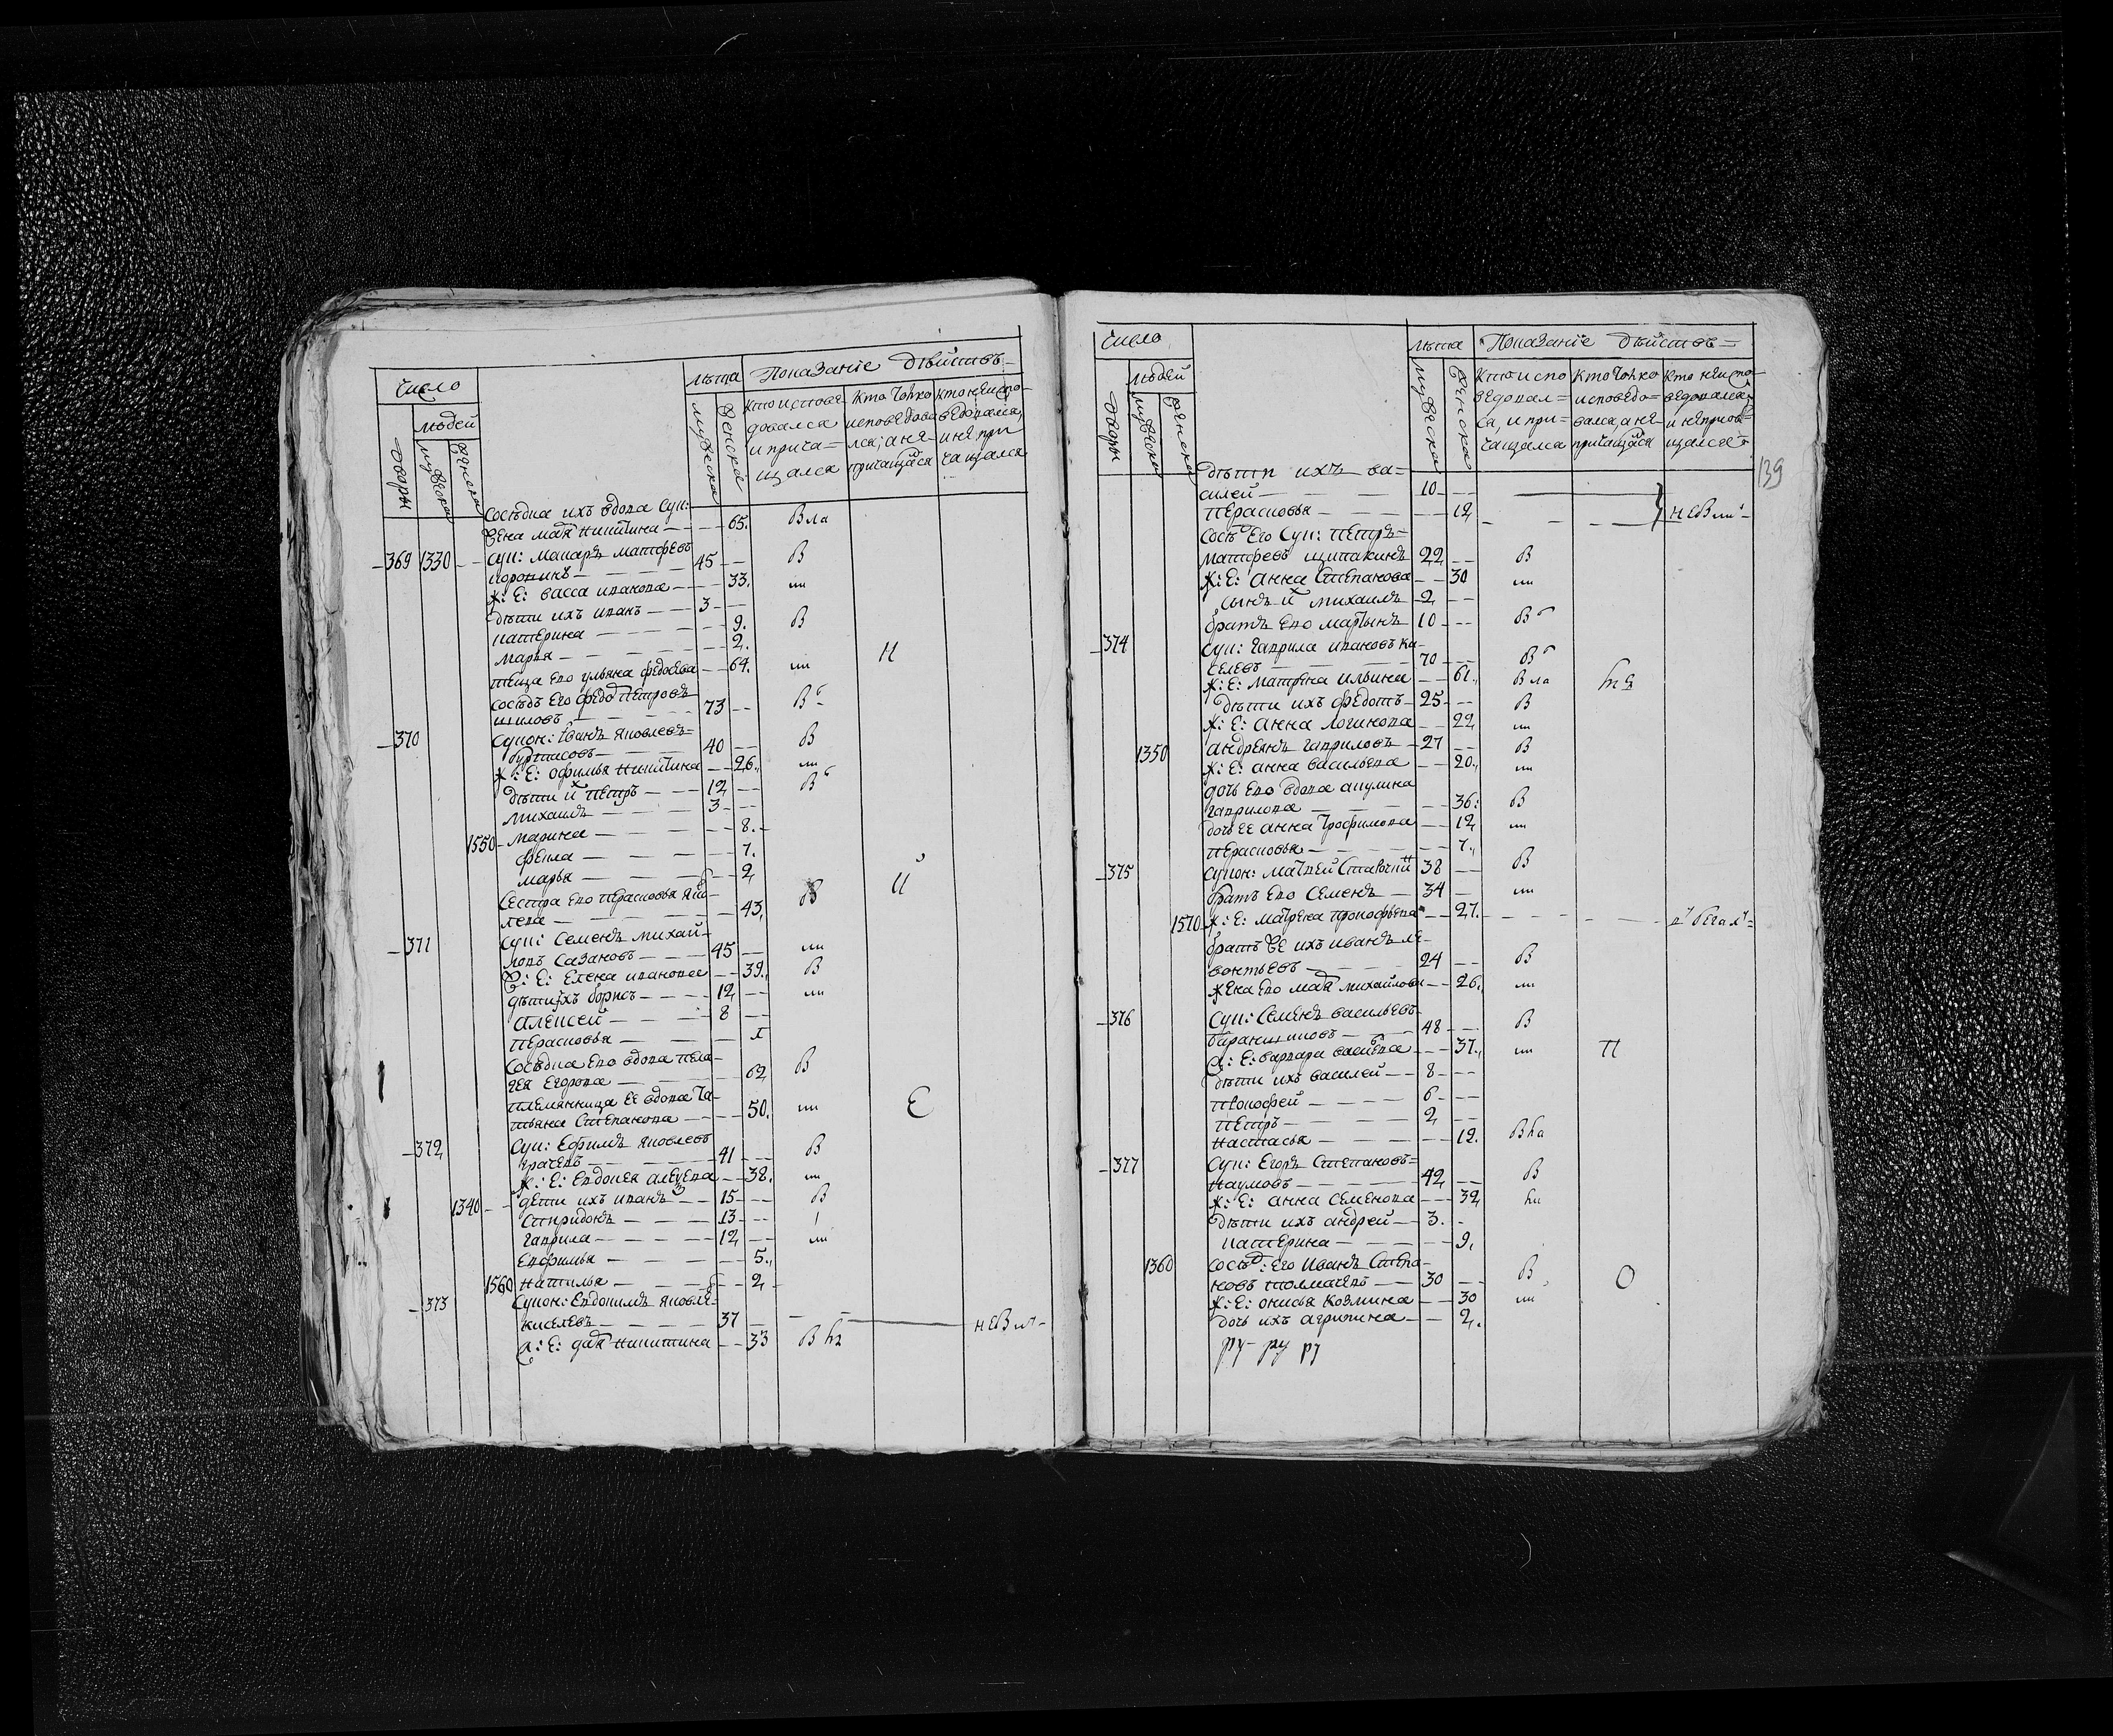 Число
лѣта Показаніе Дѣйствъ
людей
дворы мужеска женска
мужеска женска
кто исповедовался и причащался
кто токмо исповедовался, а не причащался
кто не исповедовался, и не причащался
Соседка ихъ вдова Суп:
жена Мар Никитина — 65. В ла
369 1330 Суп: Макаръ Матфевъ
45 В
ж: Е: васса иванова — 33. ли
дѣти ихъ иванъ — 3
катерина — 9. В
марья — 2. Н
теща ево ульяна федосѣева — 64. ли
сосѣдъ Его федо Петровъ
шиловъ — 73 В
370 Супон: Иванъ яковлевъ
40 В
ж: Е: офимья никитина — 26. ли
дѣти и Петръ — 12 В
михаилъ — 3
1550 марина — 8.
фекла — 7.
марья — 2
Сестра ево Парасковья яко-
влева — 43. В Й
371 Суп: Семенъ михай-
ловъ Сазановъ — 45 ли
ж: Е: Елена иванова — 39. В
дѣти ихъ борисъ — 12 ли
Алексей — 8
Парасковья — 1
Соседка ево вдова пела-
гея Егорова — 62 В
племянница Ее вдова Та-
тьяна Степанова — 50. ли Е
372 Суп: Ефимъ яковлевъ
41 В
ж: Е: Евдокея алеѯева — 38. ли
1340 дети ихъ иванъ — 15 В
Спиридонъ — 13
гаврила — 12 ли
Евфимья — 5.
1560 наталья — 2
373 Супон: Евдокимъ яковле
киселевъ — 37 невы
ж: Е: дар никитина — 33 В
Число
лѣта Показаніе дѣйствъ
людей
дворы мужеска женска
мужеска женска
Кто испо- ведовал- ся, и при- чащался
кто токмо исповедо- вался, а не причащайся
кто не испо- ведовался, и не прича- щался
139
дѣти ихъ ва-
силей — 10
Парасковья — 12
Сосѣ Его Суп: Петръ
матфевъ щипакинъ 22 В
ж: Е: анна Степанова — 30 ли
сынъ и михаилъ 2
братъ ево мартынъ 10 В
374 Суп: гаврила ивановъ ки-
селевъ — 70 В
ж: Е: матрена ильина — 61. В ла
дѣти ихъ федотъ 25 В
ж: Е: анна логинова — 22 ли
1350 андреянъ гавриловъ 27 В
ж: Е: анна васильева — 20. ли
дочь ево вдова акулина
гаврилова — 36. В
дочь ее анна трофимова — 12 ли
Парасковья — 7.
375 Супон: матвей 38 В
братъ ево Семенъ — 34 ли
1570 ж: Е: матрена прокофьева — 27.
братъ же ихъ иванъ ле-
вонтьевъ — 24 В
жена ево мар михайлова — 26. ли
376 Суп: Семенъ васильевъ
48 В
ж: Е: варвара васильева — 37. ли П
дѣти ихъ василей — 8
прокофей — 6
Петръ — 2
настасья — 12.
377 Суп: Егоръ Степановъ
наумовъ — 42 В
ж: Е: анна Семенова — 32
дѣти ихъ андрей — 3.
катерина — 9.
1360 Сосѣд: Его Иванъ Степа-
новъ толмачевъ — 30 В О
ж: Е: онисья козмина — 30 ли
дочь ихъ агрипина — 2.
ру- ру ру